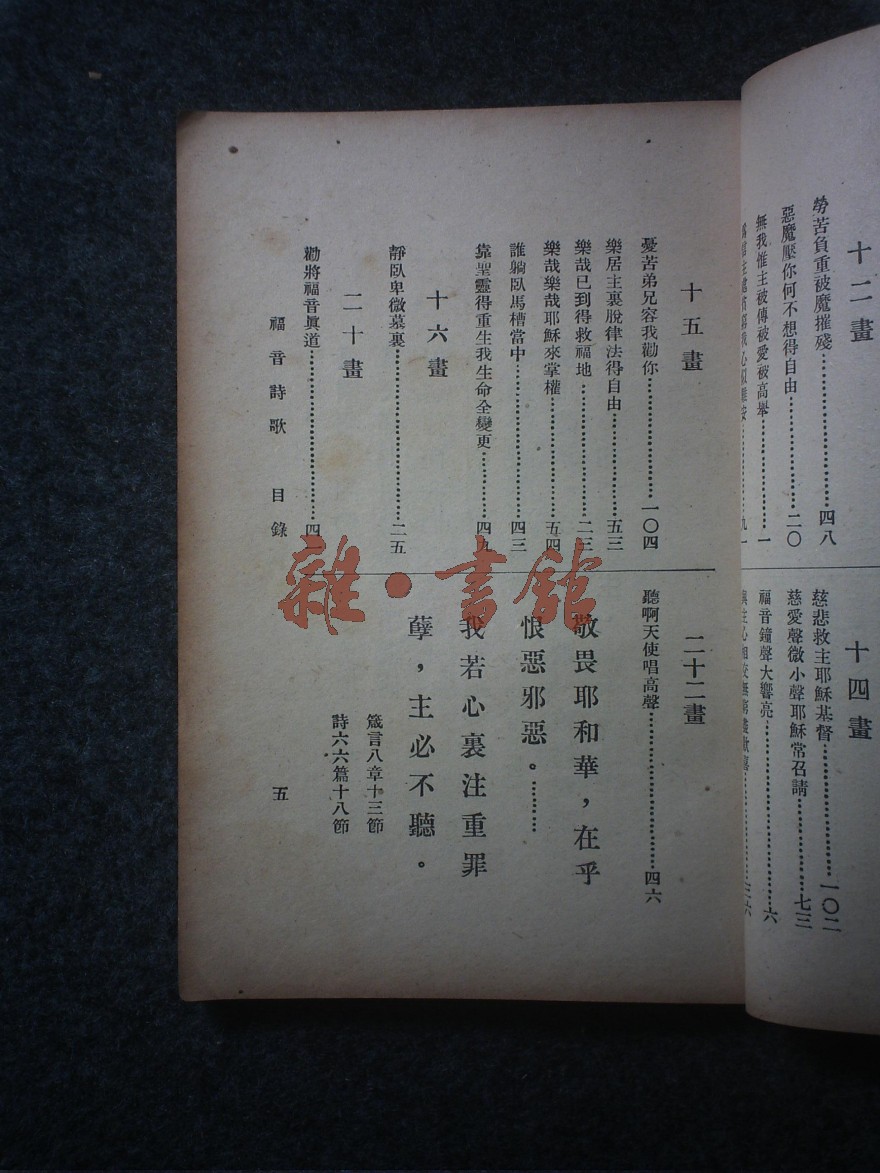 十二畫
勞苦負重被魔摧殘…………四八
惡魔壓你何不想得自由…………二〇
無我惟主被傳被愛被高舉…………一
十四畫
慈悲救主耶穌基督…………一〇二
慈愛聲微小聲耶穌常召請…………七三
福音鐘聲大響亮…………六
十五畫
憂苦弟兄容我勸你…………一〇四
樂居主裏脫律法得自由…………五三
樂哉已到得救福地…………二三
樂哉樂哉耶穌來掌權…………五四
誰躺臥馬槽當中…………四三
靠聖靈得重生我生命全變更…………四九
十六畫
靜臥卑微墓裏…………二五
二十畫
勸將福音眞道…………四
二十二畫
聽啊天使唱高聲…………四六
敬畏耶和華，在乎
恨惡邪惡。………
我若心裏注重罪
孽，主必不聽。
箴言八章十三節
詩六六篇十八節
福音詩歌 目錄
五
雜·書館